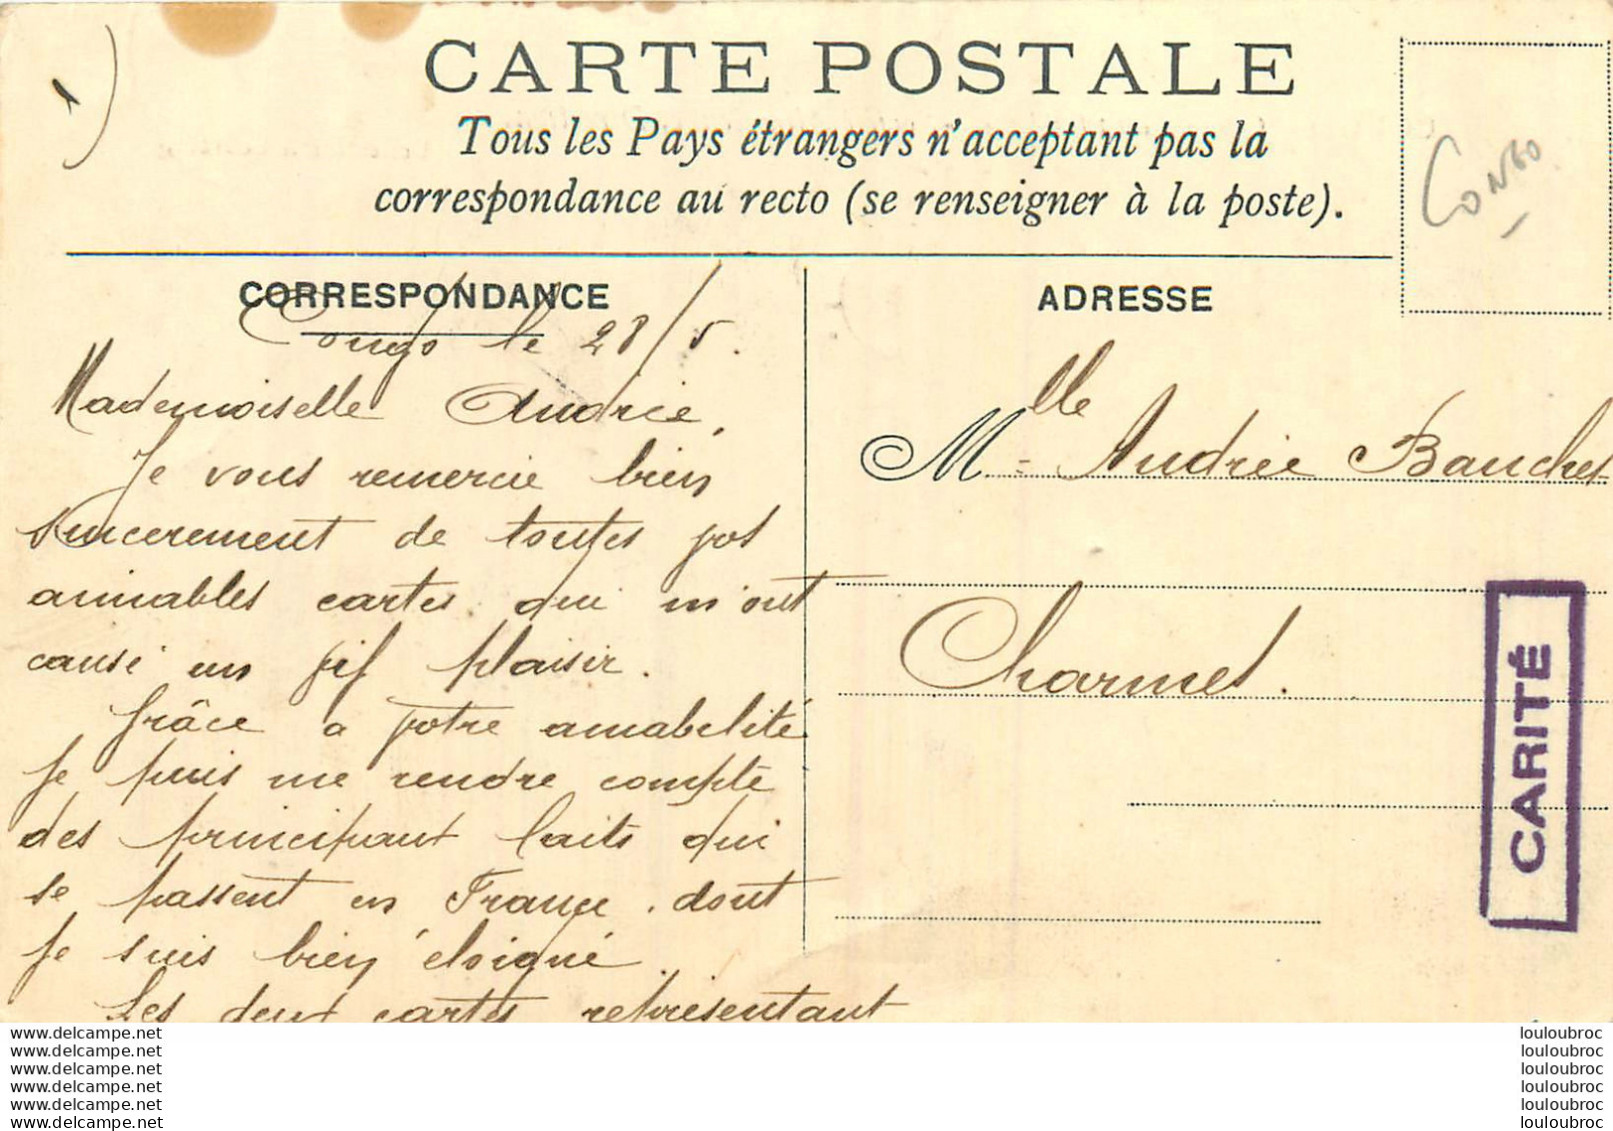 CARTE POSTALE
Tous les Pays étrangers n'acceptant pas la
correspondance au recto (se renseigner à la poste).
CONGO
CORRESPONDANCE
Congo le 28/5.
Mademoiselle Andrée,
Je vous remercie bien
sincerement de toutes vos
aimables cartes qui m'ont
causé un vif plaisir.
Grâce a votre amabelité
je puis me rendre compte
des principaut faits qui
se passent en France. dont
je suis bien éloigné.
Les deux cartes représentant
ADRESSE
Mlle Andrée Bauchet
Charmes.
CARITÉ
www.delcampe.net
www.delcampe.net
www.delcampe.net
www.delcampe.net
www.delcampe.net
www.delcampe.net
louloubroc
louloubroc
louloubroc
louloubroc
louloubroc
louloubroc